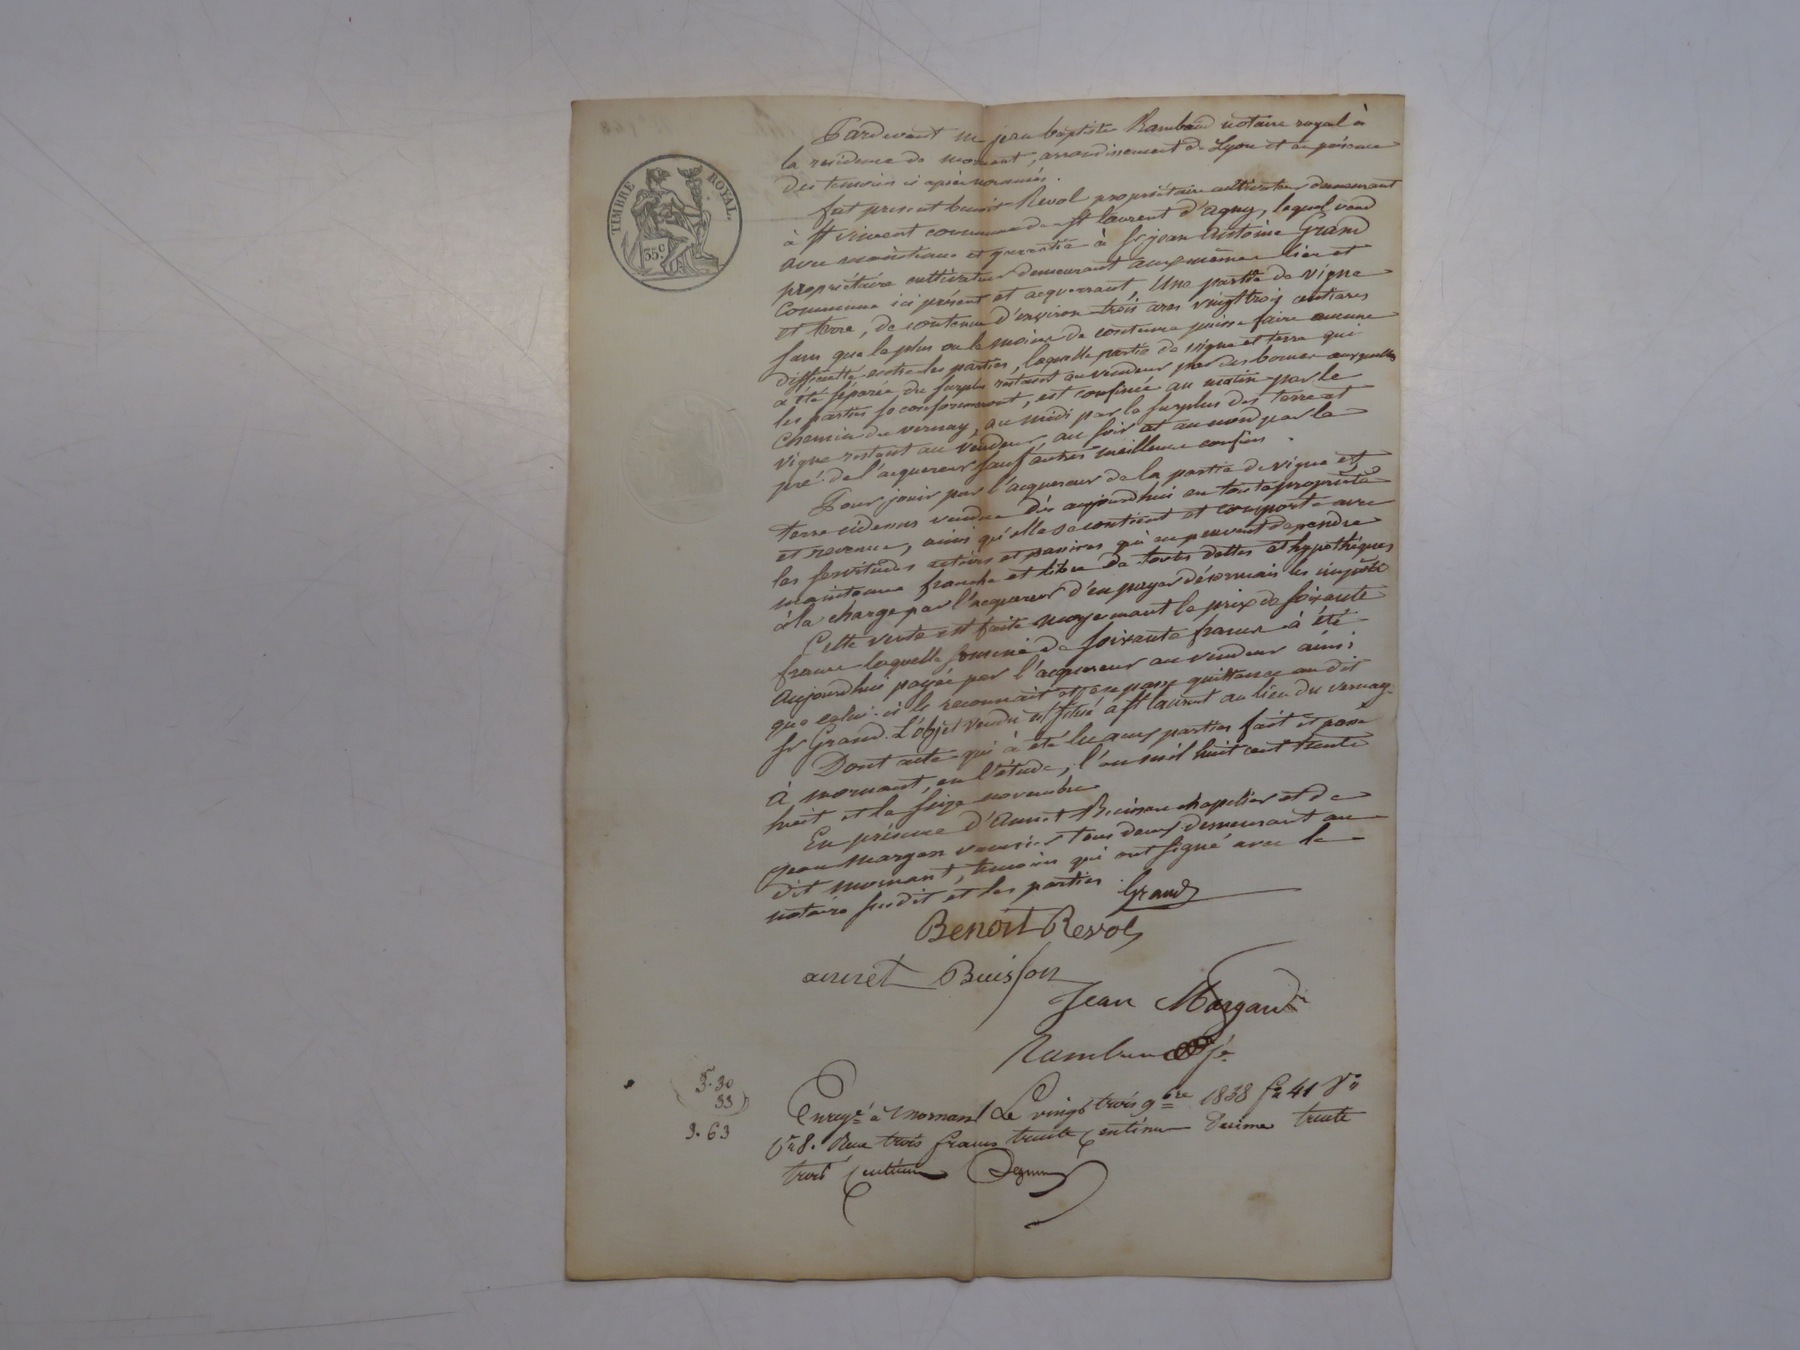 TIMBRE ROYAL.
35 c
Pardevant me jean baptiste Rambaud notaire royal à
la residence de mornant, arrondissement de Lyon et en présence
des temoins ci après nommés.
fut present benoit Revol propriétaire cultivateur demeurant
à st vincent commune de st laurent d'agny, lequel vend
avec maintenue et garantie à sr jean Antoine Grand
propriétaire cultivateur demeurant aux mêmes lieu et
commune ici présent et acquerrant, Une partie de vigne
et terre, de contenue d'environ trois ares vingt trois centiares
sans que le plus ou le moins de contenue puisse faire aucune
difficulté entre les parties, laquelle partie de vigne et terre qui
a été séparée du surplus restant au vendeur par des bornes auxquelles
les parties se conformeront, est confinée au matin par le
chemin du vernay, au midi par le surplus des terre et
vigne restant au vendeur, au soir et au nord par le
pré de l'acquereur sauf autres meilleurs confins.
Pour jouir par l'acquereur de la partie de vigne et
terre cidessus vendue dès aujourdhui en toute propriété
et revenus, ainsi qu'elle se contient et comporte avec
les servitudes actives et passives qui en peuvent dependre
maintenue franche et libre de toutes dettes et hypothèques
à la charge par l'acquereur d'en payer désormais les impots
Cette vente est faite moyennant le prix de soixante
francs laquelle somme de soixante francs à été
aujourdhui payée par l'acquereur au vendeur ainsi
que celui-ci le reconnait et en passe quittance au dit
sr Grand. L'objet vendu est situé à st laurent au lieu du vernay.
Dont acte qui à été lu aux parties fait et passé
à mornant, en l'étude, l'an mil huit cent trente
huit et le seize novembre
En présence d'Annet Buisson chapelier et de
jean Margan tous deux demeurant au
dit mornant, temoins qui ont signé avec le
notaire susdit et les parties. Grand
Benoit Revol
annet Buisson
Jean Margan
Rambaud
3.30
33
3.63
Enregé à Mornant Le vingt trois 9bre 1838 fo 41 vo
Ce 8. Reçu trois francs trente Centimes Decime trente
trois Centimes